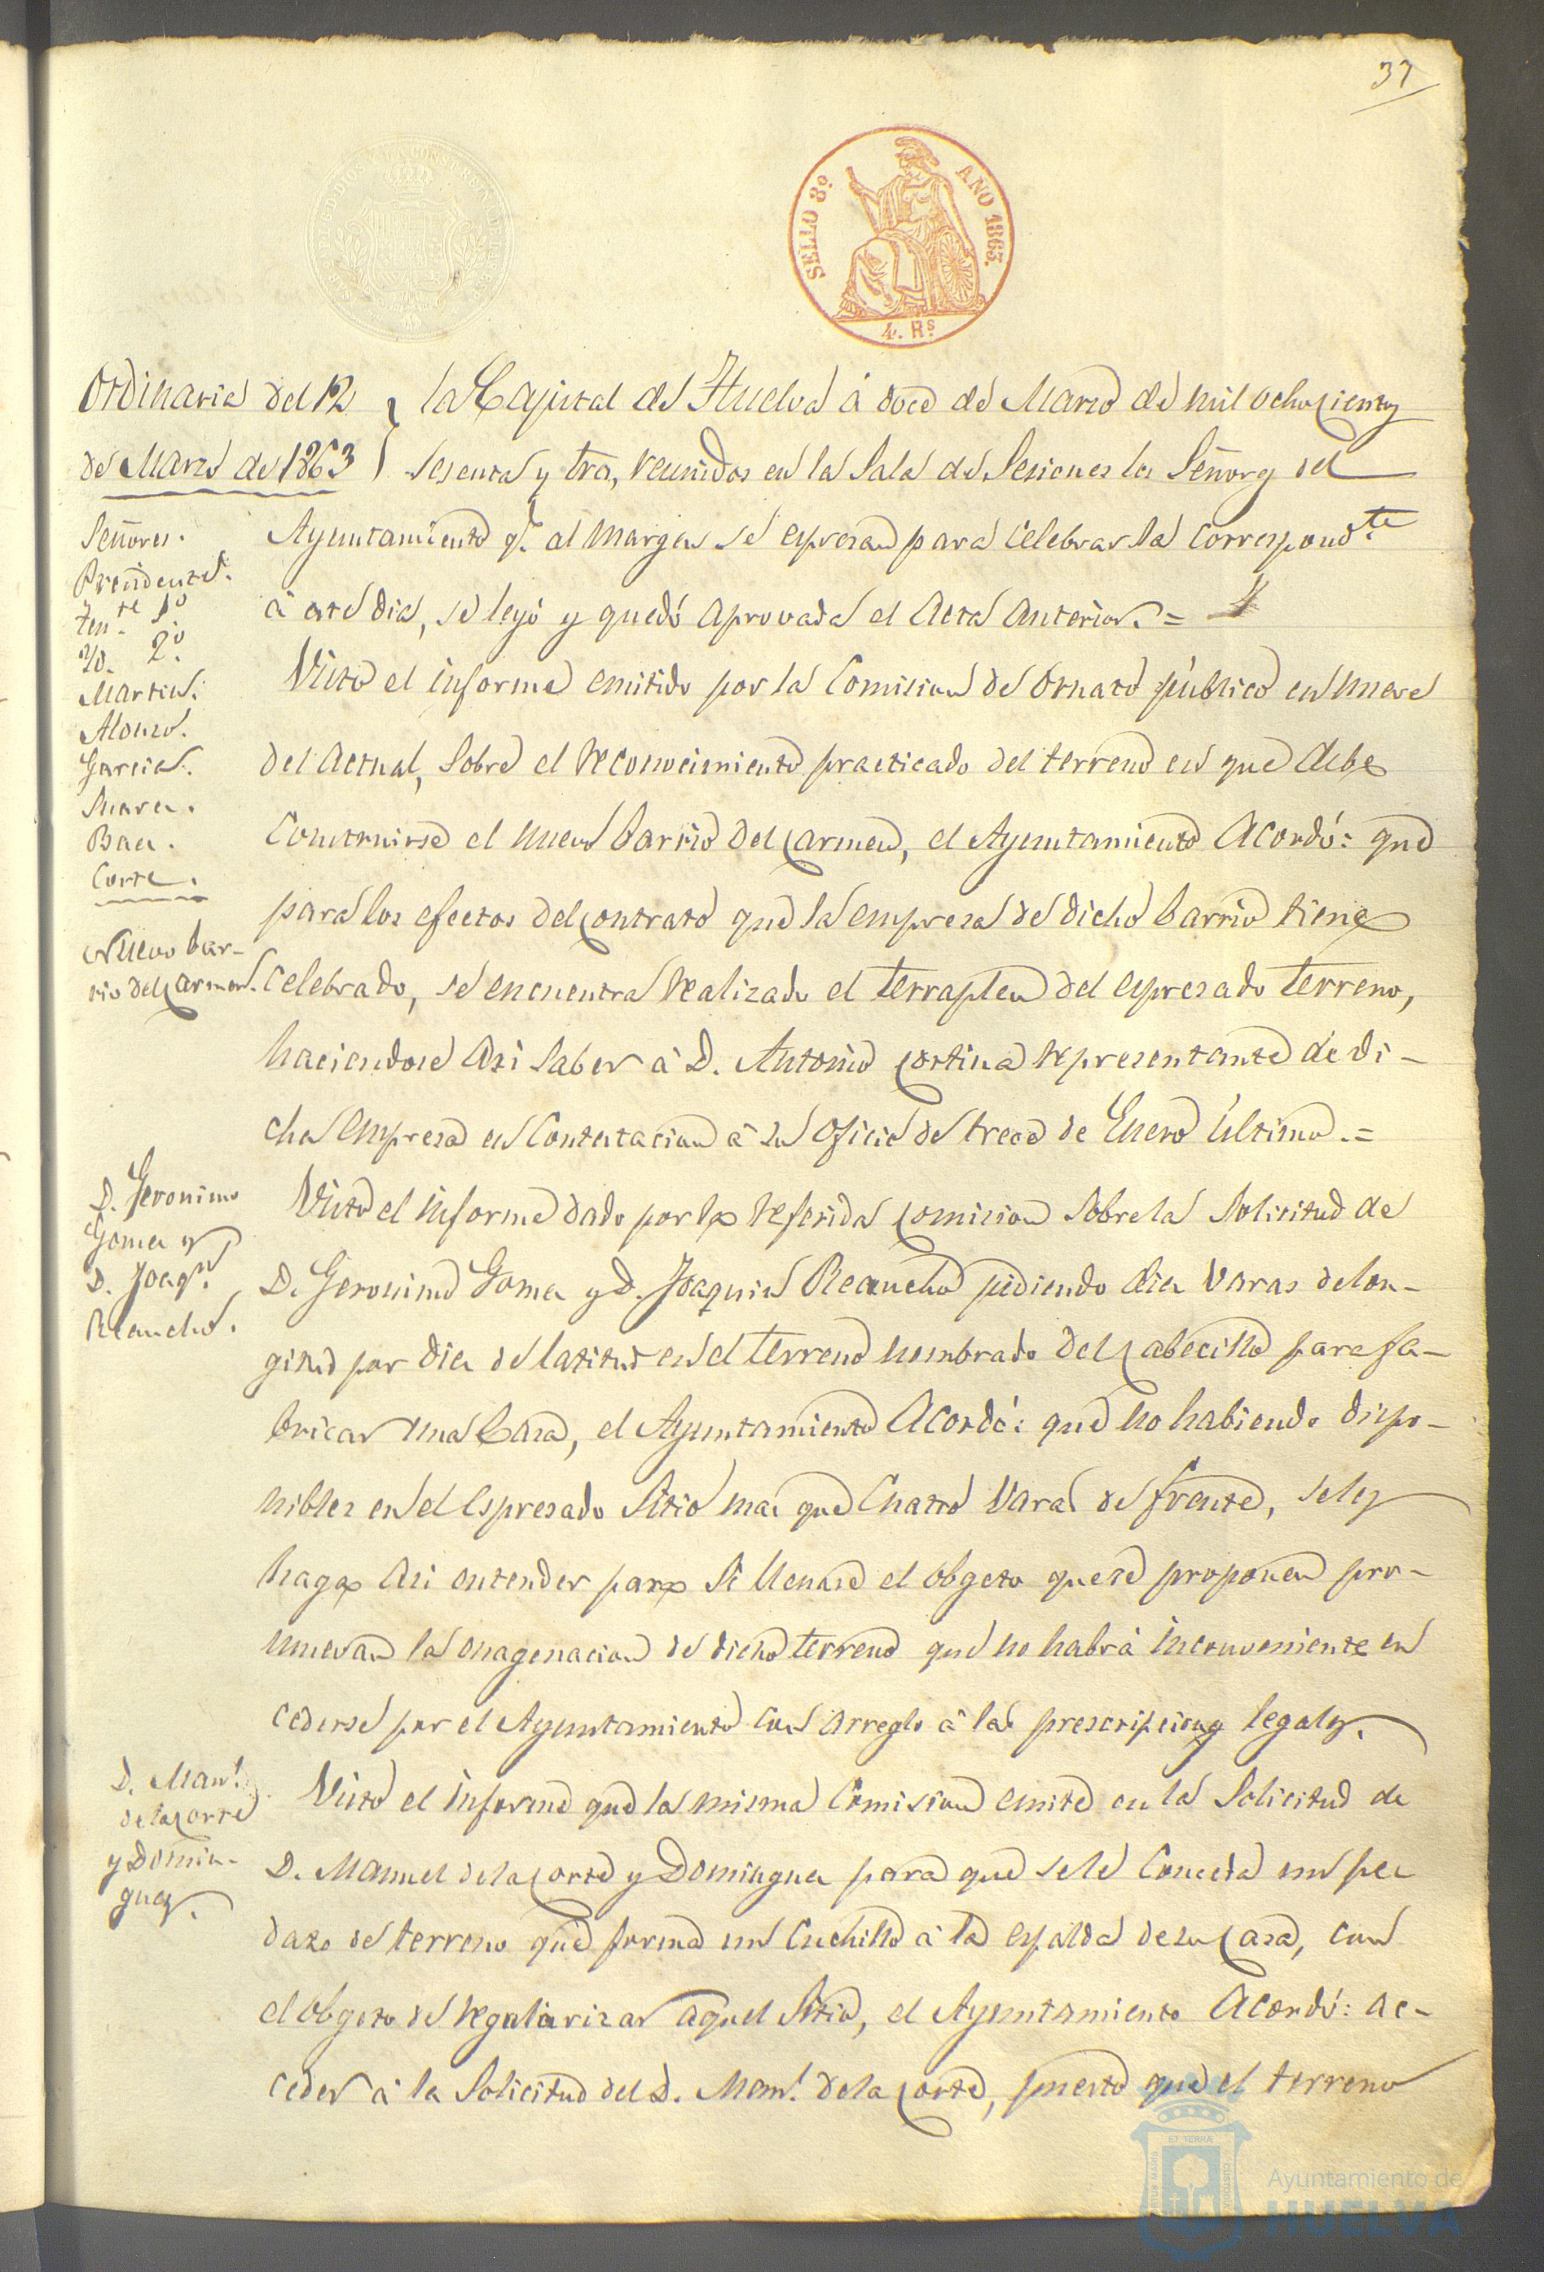 37
SELLO 8º AÑO 1863.
4. Rs
Ordinaria del 12
de Marzo de 1863
la Capital de Huelva á doce de Marzo de mil ochocientos
sesenta y tres, reunidos en la Sala de Sesiones los Señores del
Señores.
Presidente.
Tente 1º
Yd. 2º
Martin.
Alonso.
Garcia.
Suarez.
Baez.
Corte.
Ayuntamiento q.e al margen se espresan para celebrar la correspondte
á este dia, se leyó y quedó aprovada el Acta anterior. =
Nuevo bar-
rio del Carmen.
Visto el informe emitido por la Comision de Ornato público en nueve
del actual, sobre el reconocimiento practicado del terreno en que debe
construirse el nuevo barrio del Carmen, el Ayuntamiento Acordó: que
para los efectos del contrato que la empresa de dicho barrio tiene
celebrado, se encuentra realizado el terraplen del espresado terreno,
haciendose asi saber á D. Antonio Cortina representante de di-
cha empresa en contestacion á su oficio de trece de Enero último. =
D. Geronimo
Gomez y
D. Joaqn.
Reancho.
Visto el informe dado por la referida comision sobre la solicitud de
D. Geronimo Gomez y D. Joaquin Reancho pidiendo diez varas de lon-
gitud por diez de latitud en el terreno nombrado del Cabecillo para fa-
bricar una Casa, el Ayuntamiento Acordó: que no habiendo dispo-
nibles en el espresado sitio mas que cuatro varas de frente, se les
haga asi entender para si llenase el obgeto que se proponen pro-
muevan la enagenacion de dicho terreno que no habrá inconveniente en
cederse por el Ayuntamiento con arreglo á las prescripciones legales.
D. Manl.
de la Corte
y Domin-
guez.
Visto el informe que la misma Comision emite en la Solicitud de
D. Manuel de la Corte y Dominguez para que se le conceda un pe
dazo de terreno que forma un cuchillo á la espalda de su Casa, con
el obgeto de regularizar aquel sitio, el Ayuntamiento Acordó: ac-
ceder á la solicitud del D. Manl. de la Corte, puesto que el terreno
Ayuntamiento de
HUELVA